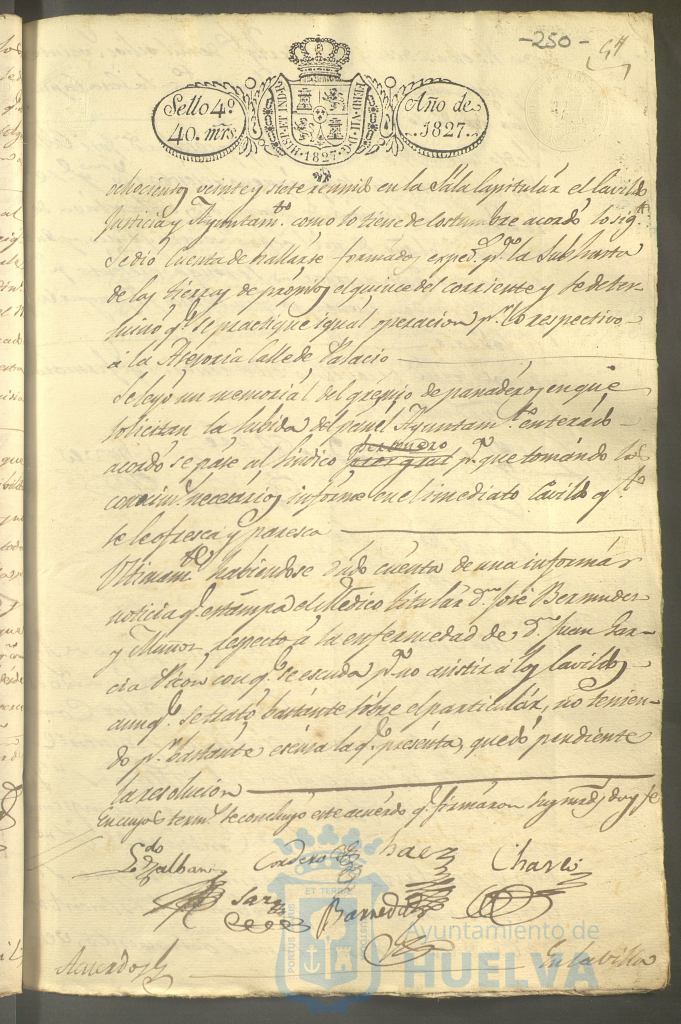 -250-
Sello 4º
40. mrs.
HISP. ET IND. R.
FERD. VII. D. G.
1827
Año de
1827.
ochocientos veinte y siete reunido en la Sala Capitular el Cavildo
Justicia y Ayuntamto. como lo tiene de costumbre acordó lo sigte.
Se dió cuenta de hallarse formados expedtes. pa. la Subhasta
de las tierras de propios el quince del corriente y se deter-
minó qe. se practique igual operacion pr. lo respectivo
á la Calle de Palacio
Se leyó un memorial del gremio de panaderos en que
solicitan la subida del pan el Ayuntamto. enterado
acordó se pase al Sindico personero pa. que tomando los
conocimtos. necesarios informe en el imediato Cavildo qto.
se le ofresca y paresca
Ultimamte. habiendose dado cuenta de una informár
noticia qe. estampa el Medico titular Dn. José Bermudez
y Muñoz respecto á la enfermedad de D. Juan Gar-
cia con qe. se escuda pa. no asistir á los Cavildos
aunqe. se trató bastante sobre el particular, no tenien-
do pr. bastante escusa la qe. presenta, quedó pendiente
la resolucion
En cuyos termos. se concluyó este acuerdo qe. firmaron sus mrds. doy fe
Ldo. Zalbano
Cordero
Chaves
Barreda
Acuerdo
En la villa
PORTUS MARIS ET TERRAE CUSTODIA
Ayuntamiento de
HUELVA